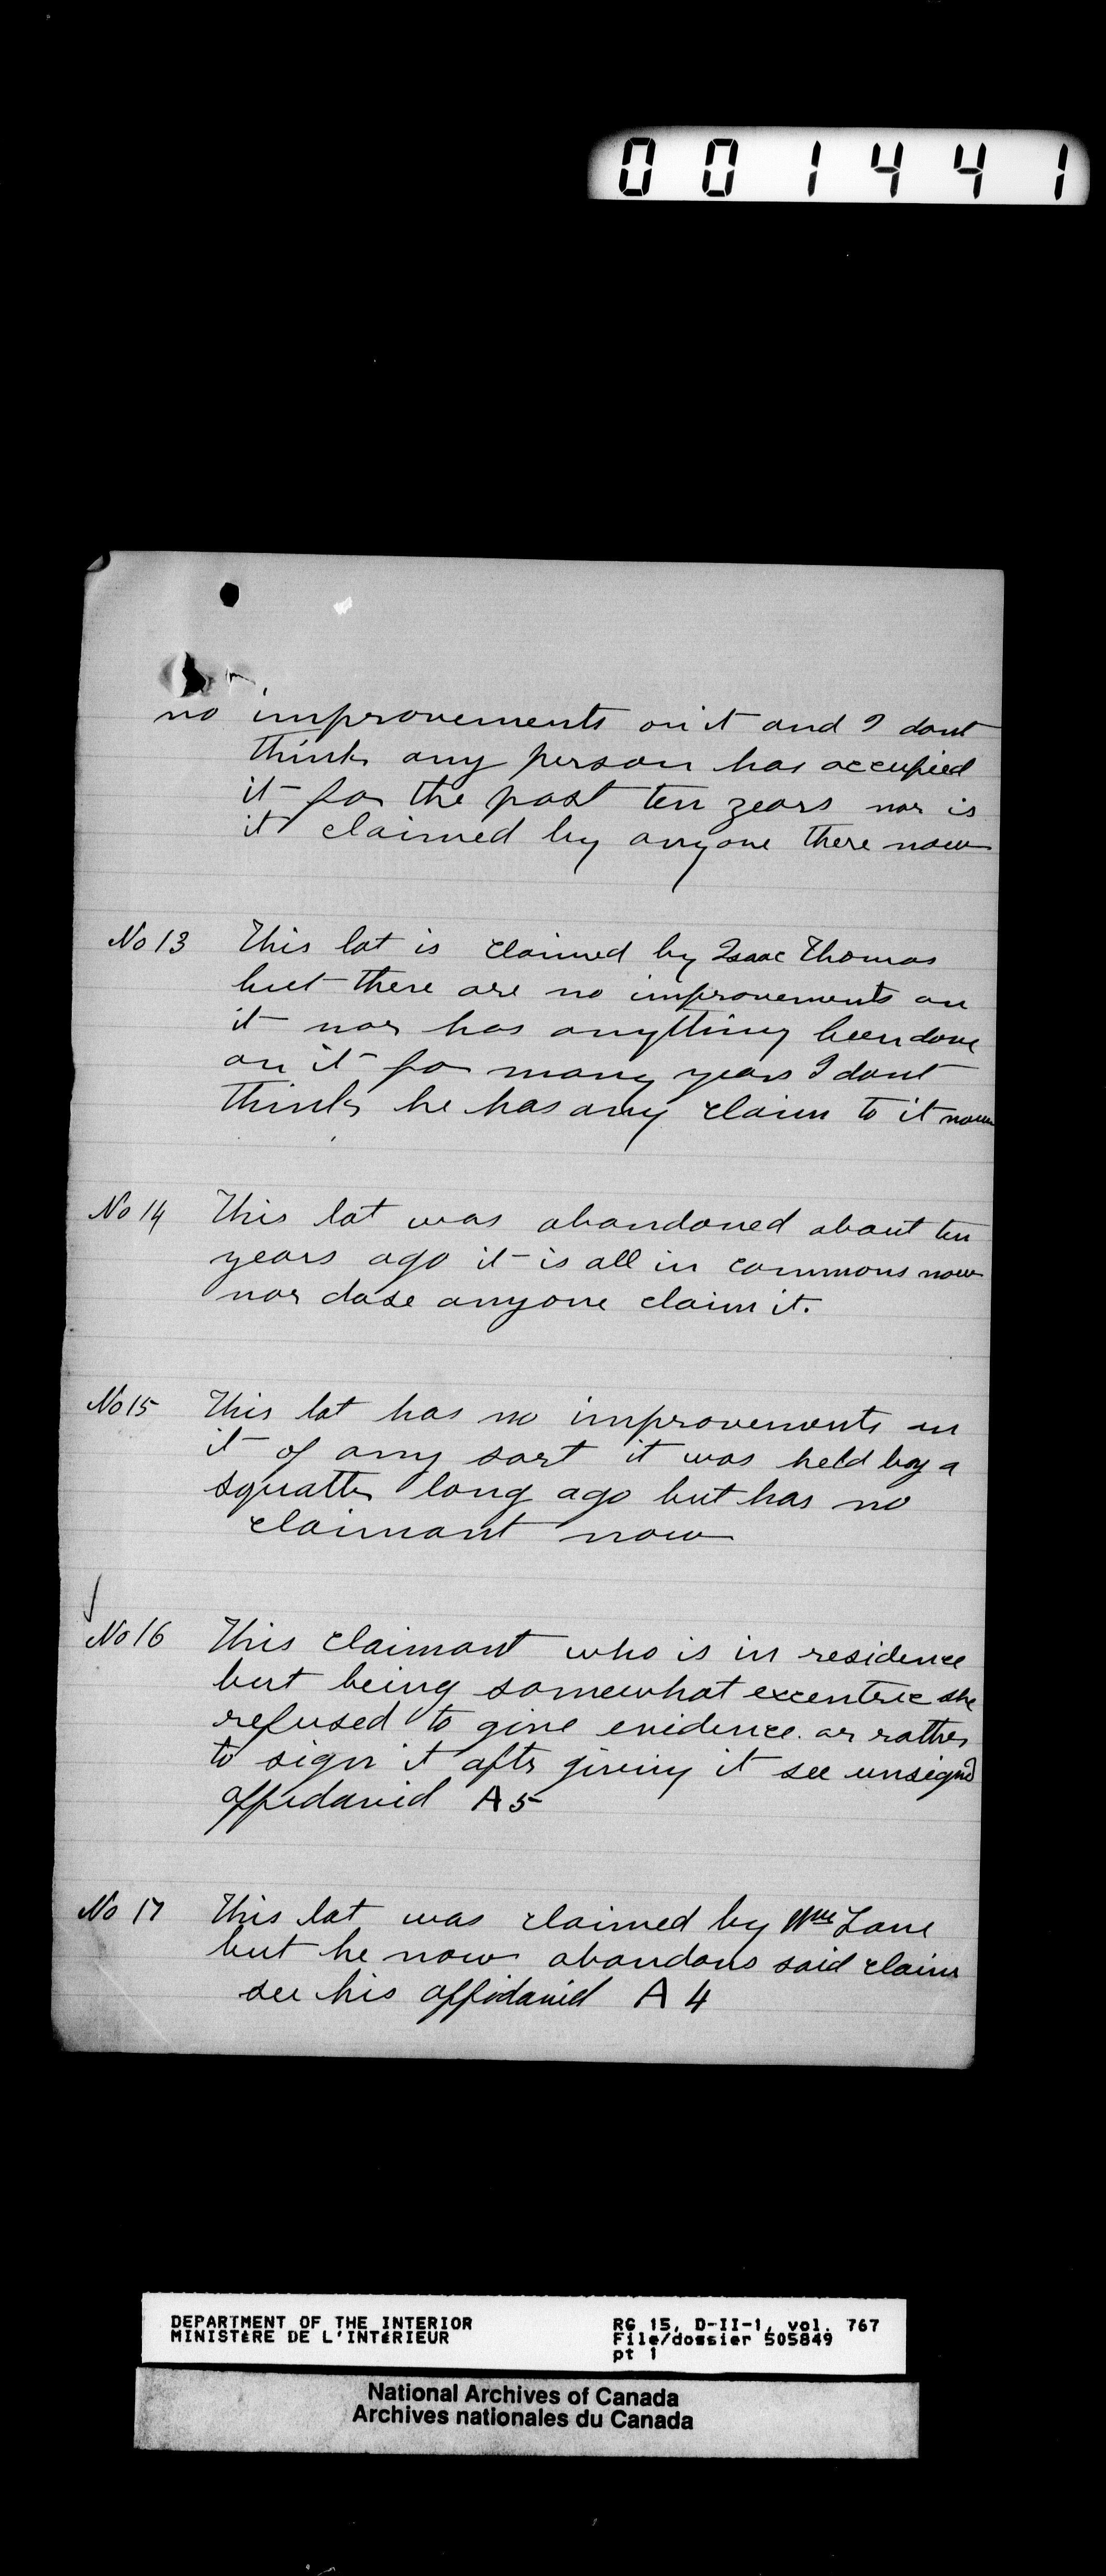 001441
no improvements on it and I dont
think any person has occupied
it for the past ten years nor is
it claimed by anyone there now
No 13 This lot is claimed by Isaac Thomas
but there are no improvements on
it nor has anything been done
on it for many years I dont
think he has any claim to it now
No 14 This lot was abandoned about ten
years ago it is all in commons now
nor dose anyone claim it.
No 15 This lot has no improvements on
it of any sort it was held by a
squatter long ago but has no
claimant now
No 16 This claimant who is in residence
but being somewhat excentric she
refused to give evidence. or rather
to sign it aftr giving it see unsignd
affidavid A 5
No 17 This lot was claimed by Wm Lane
but he now abandons said claim
see his affidavid A 4
DEPARTMENT OF THE INTERIOR RG 15, D-II-1, vol. 767
MINISTÈRE DE L'INTÉRIEUR File/dossier 505849
pt 1
National Archives of Canada
Archives nationales du Canada